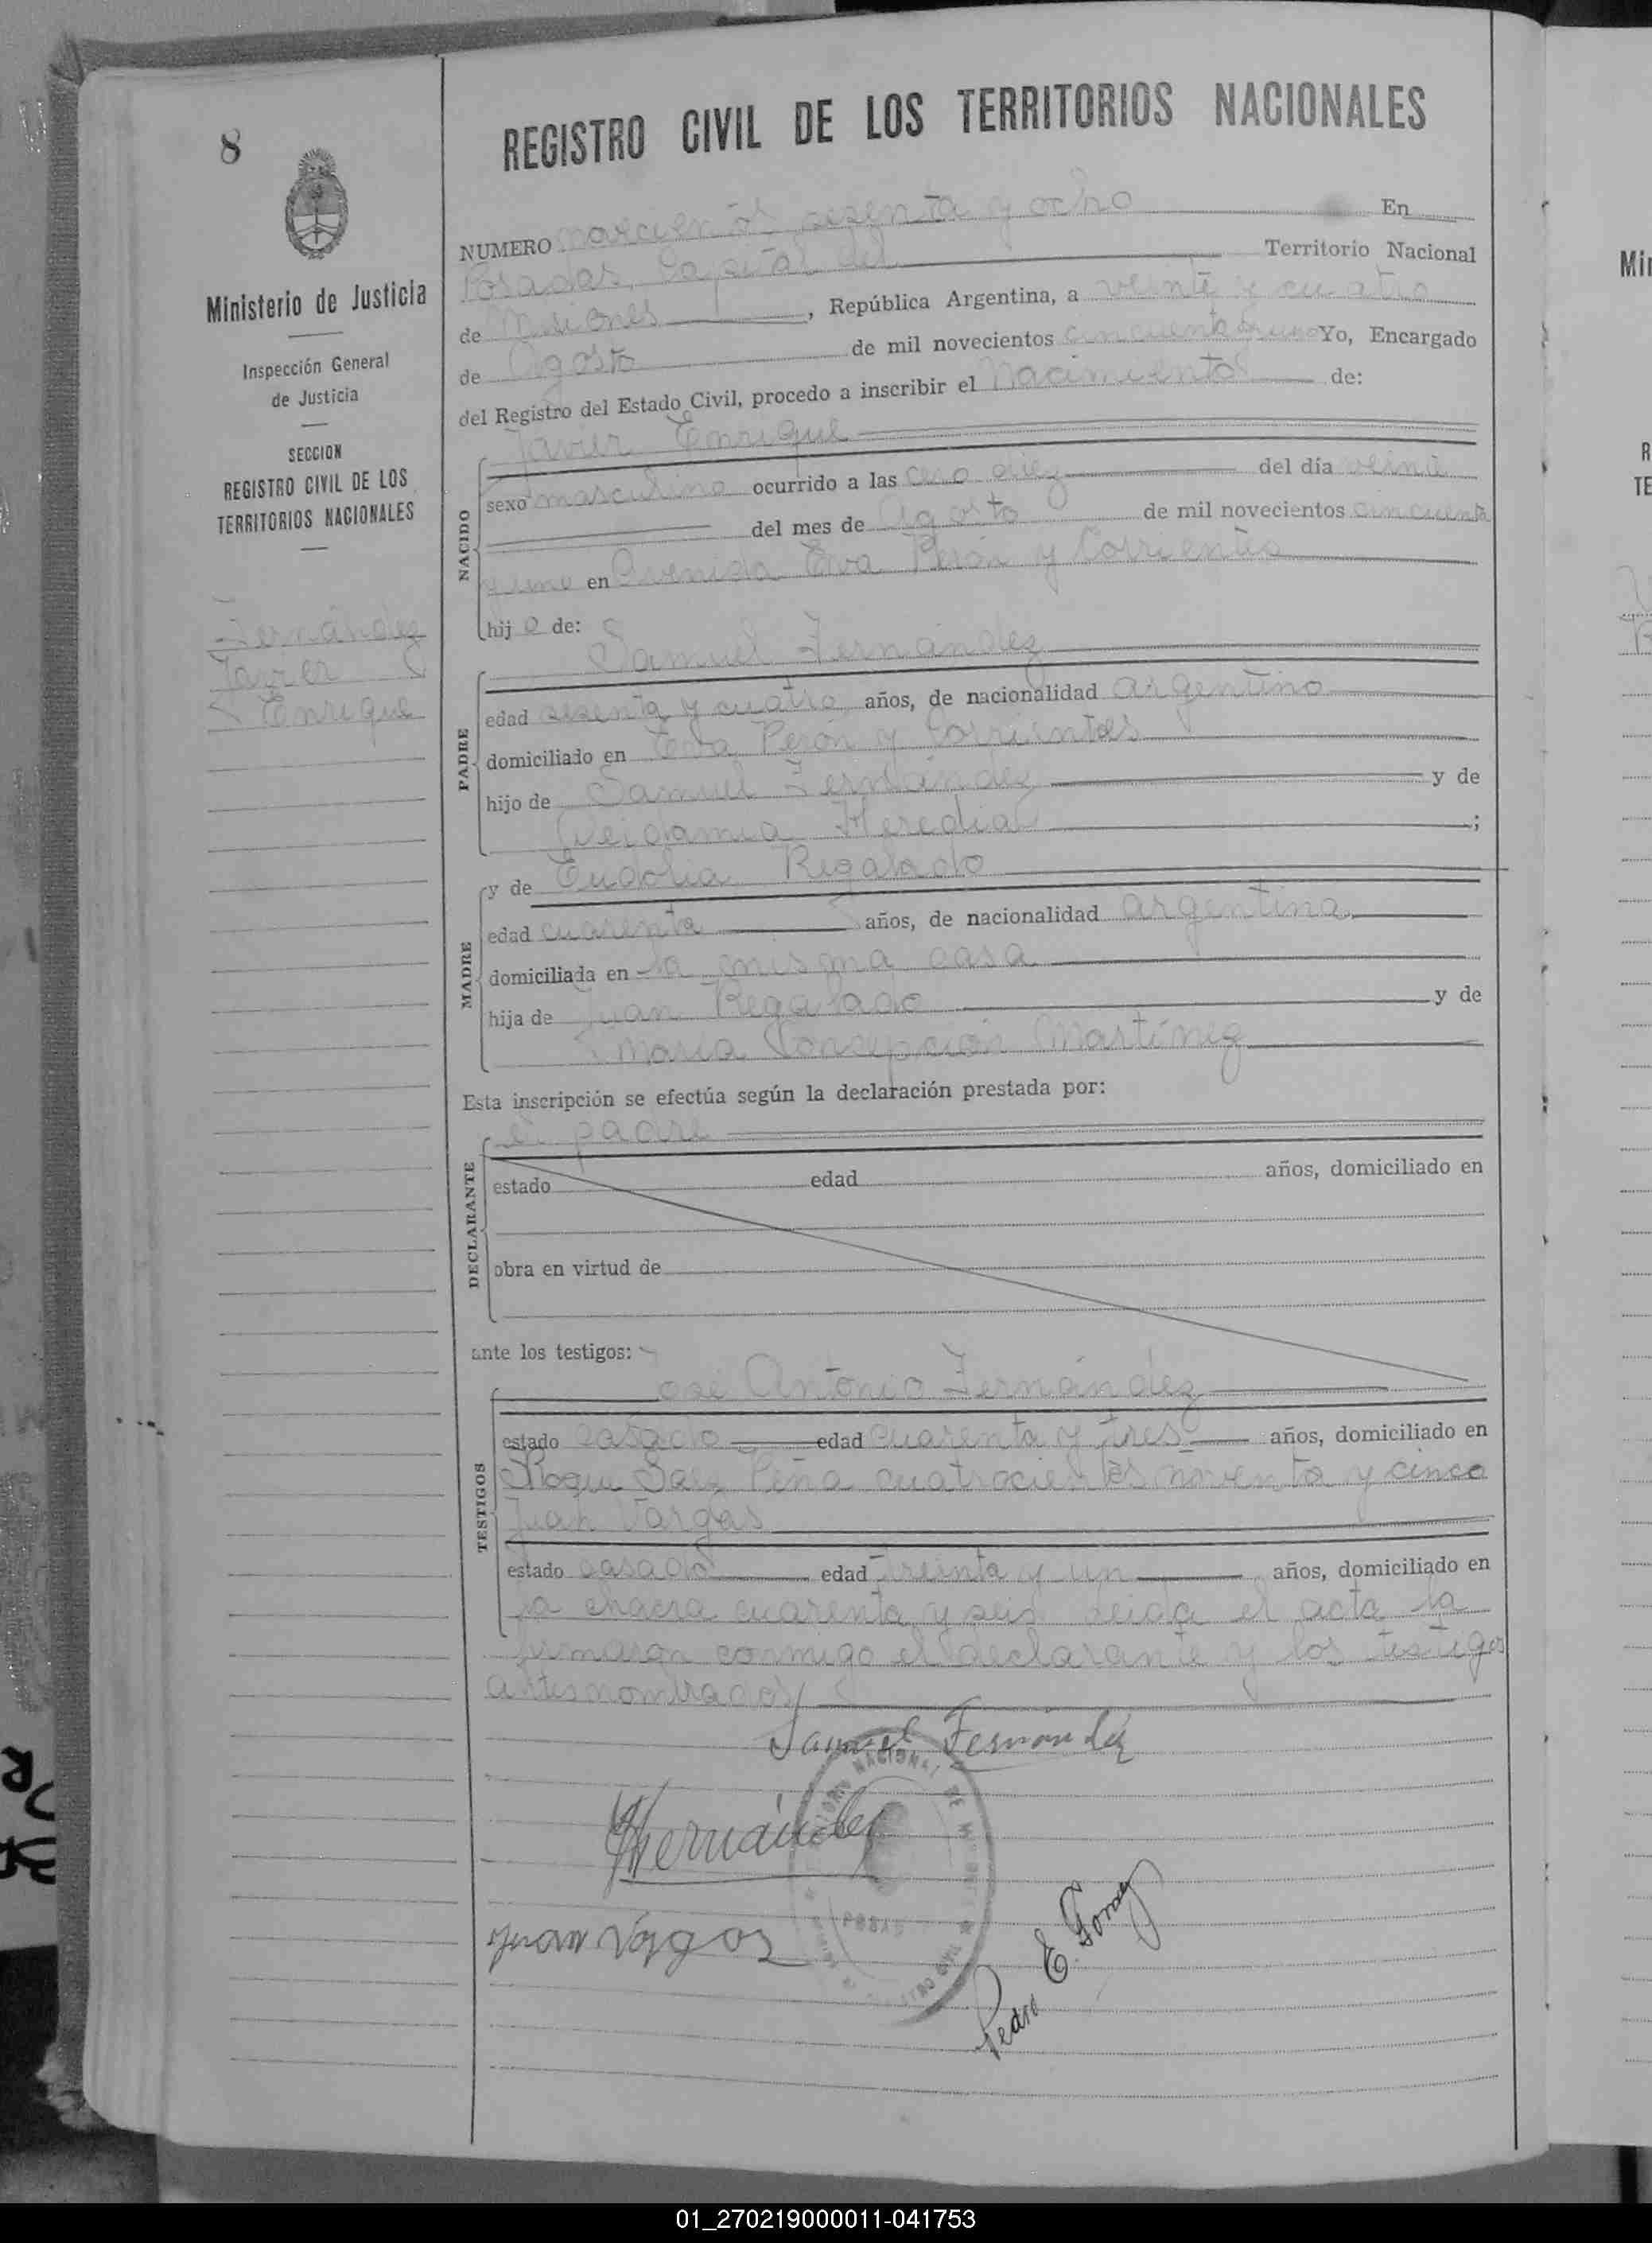 8
REGISTRO CIVIL DE LOS TERRITORIOS NACIONALES
Ministerio de Justicia
Inspección General
de Justicia
SECCION
REGISTRO CIVIL DE LOS
TERRITORIOS NACIONALES
Fernández
Javier
Enrique
NUMERO sesenta y ocho En
Posadas, Capital del Territorio Nacional
de Misiones, República Argentina, a veinte y cuatro
de Agosto de mil novecientos cincuenta y uno Yo, Encargado
del Registro del Estado Civil, procedo a inscribir el Nacimiento de:
Javier Enrique
NACIDO
sexo masculino ocurrido a las cero diez del día veinte
del mes de Agosto de mil novecientos cincuenta
y uno en Avenida Eva Perón y Corrientes
hijo de:
Samuel Fernández
PADRE
edad sesenta y cuatro años, de nacionalidad argentino
domiciliado en Eva Perón y Corrientes
hijo de Samuel Fernández y de
Deidamia Heredia;
MADRE
y de Eudolia Regalado
edad cuarenta años, de nacionalidad argentina
domiciliada en la misma casa
hija de Juan Regalado y de
María Concepción Martínez
Esta inscripción se efectúa según la declaración prestada por:
el padre
DECLARANTE
estado edad años, domiciliado en
obra en virtud de
ante los testigos:
José Antonio Fernández
TESTIGOS
estado casado edad cuarenta y tres años, domiciliado en
Roque Saez Peña cuatrocientos noventa y cinco
Juan Vargas
estado casado edad treinta y un años, domiciliado en
la chacra cuarenta y seis leida el acta la
firmaron conmigo el declarante y los testigos
antesnombrados
Samuel Fernández
Juan Vargas
Pedro E. Gomez
01_270219000011-041753